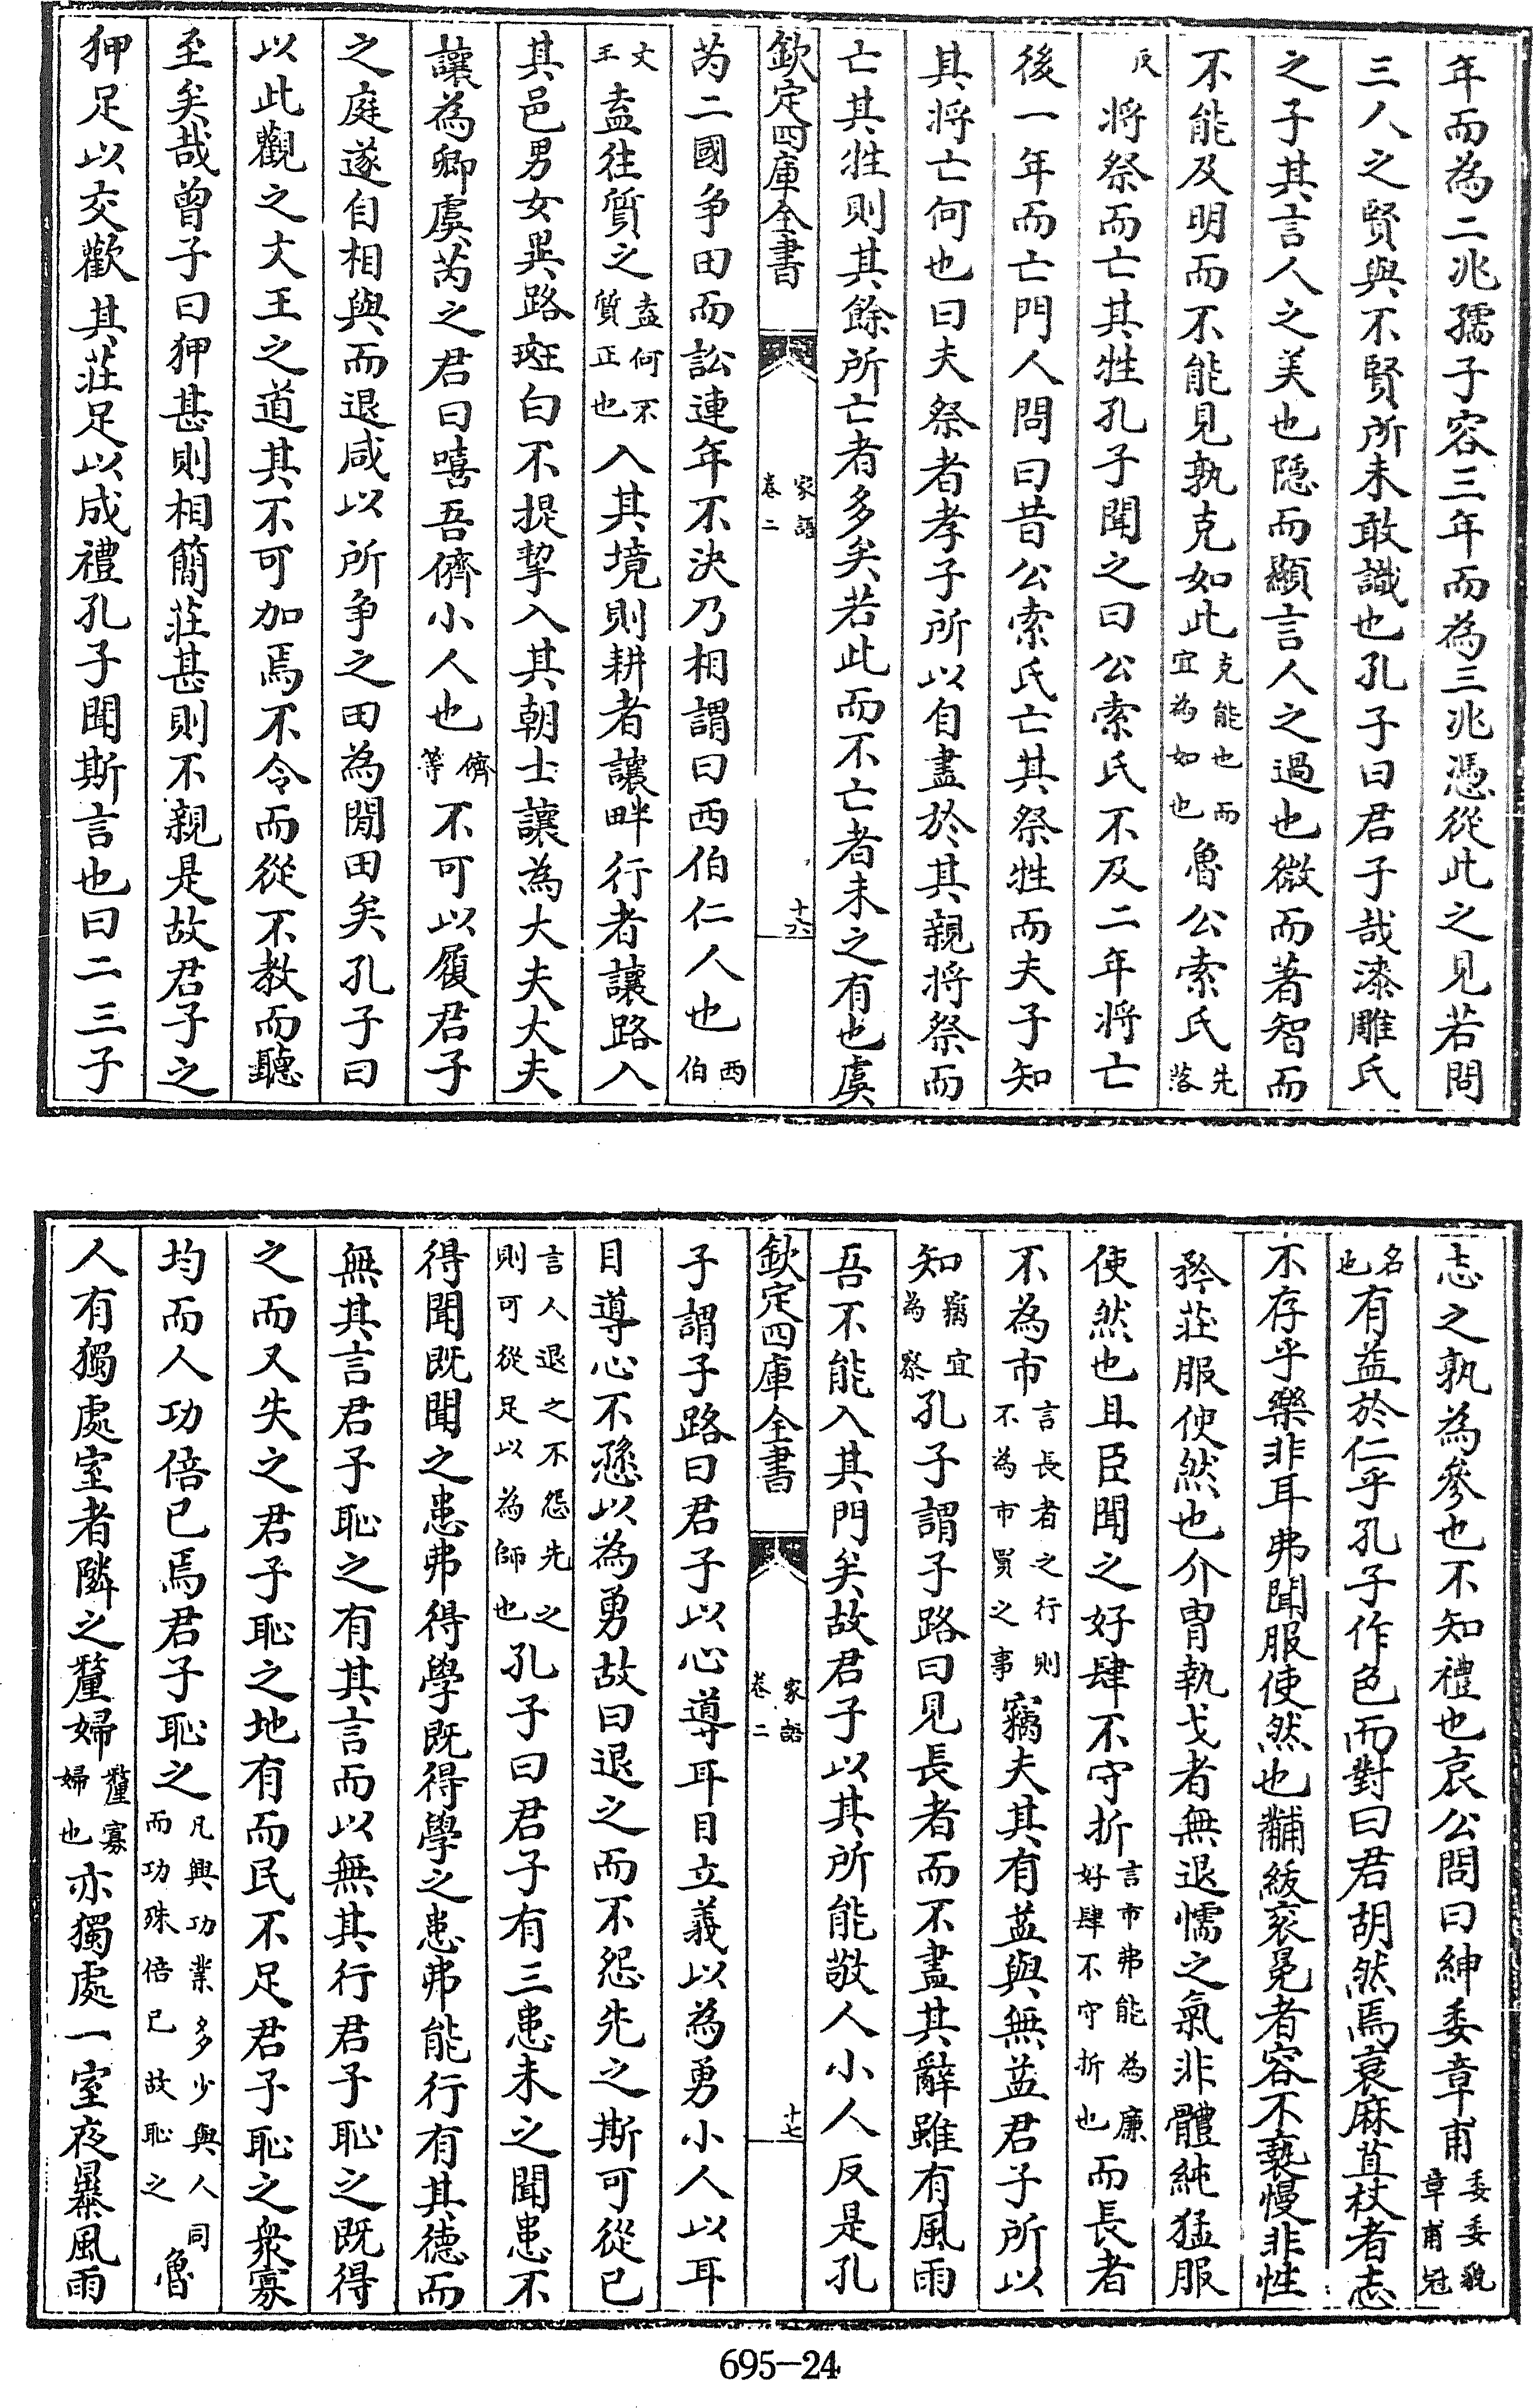 年而為二兆孺子容三年而為三兆憑從此之見若問
三人之賢與不賢所未敢識也孔子曰君子哉漆雕氏
之子其言人之美也隱而顯言人之過也微而著智而
不能及明而不能見孰克如此克能也而宜為如也魯公索氏先落
反將祭而亡其牲孔子聞之曰公索氏不及二年將亡
後一年而亡門人問曰昔公索氏亡其祭牲而夫子知
其將亡何也曰夫祭者孝子所以自盡於其親將祭而
亡其牲則其餘所亡者多矣若此而不亡者未之有也虞
欽定四庫全書 家語卷二 十六
芮二國争田而訟連年不決乃相謂曰西伯仁人也西伯
文王盍往質之盍何不質正也入其境則耕者讓畔行者讓路入
其邑男女異路斑白不提挈入其朝士讓為大夫大夫
讓為卿虞芮之君曰嘻吾儕小人也儕等不可以履君子
之庭遂自相與而退咸以所争之田為閒田矣孔子曰
以此觀之文王之道其不可加焉不令而從不教而聽
至矣哉曾子曰狎甚則相簡莊甚則不親是故君子之
狎足以交歡其莊足以成禮孔子聞斯言也曰二三子
志之孰為參也不知禮也哀公問曰紳委章甫委委貌章甫冠
名也有益於仁乎孔子作色而對曰君胡然焉衰麻苴杖者志
不存乎樂非耳弗聞服使然也黼紱衮冕者容不䙝慢非性
矜莊服使然也介胄執戈者無退懦之氣非體純猛服
使然也且臣聞之好肆不守折言市弗能為廉好肆不守折也而長者
不為市言長者之行則不為市買之事竊夫其有益與無益君子所以
知竊宜為察孔子謂子路曰見長者而不盡其辭雖有風雨
吾不能入其門矣故君子以其所能敬人小人反是孔
欽定四庫全書 家語卷二 十七
子謂子路曰君子以心導耳目立義以為勇小人以耳
目導心不愻以為勇故曰退之而不怨先之斯可從已
言人退之不怨先之則可從足以為師也孔子曰君子有三患未之聞患不
得聞既聞之患弗得學既得學之患弗能行有其德而
無其言君子恥之有其言而以無其行君子恥之既得
之而又失之君子恥之地有而民不足君子恥之衆寡
均而人功倍已焉君子恥之凡興功業多少與人同而功殊倍已故恥之魯
人有獨處室者隣之釐婦釐寡婦也亦獨處一室夜暴風雨
695-24